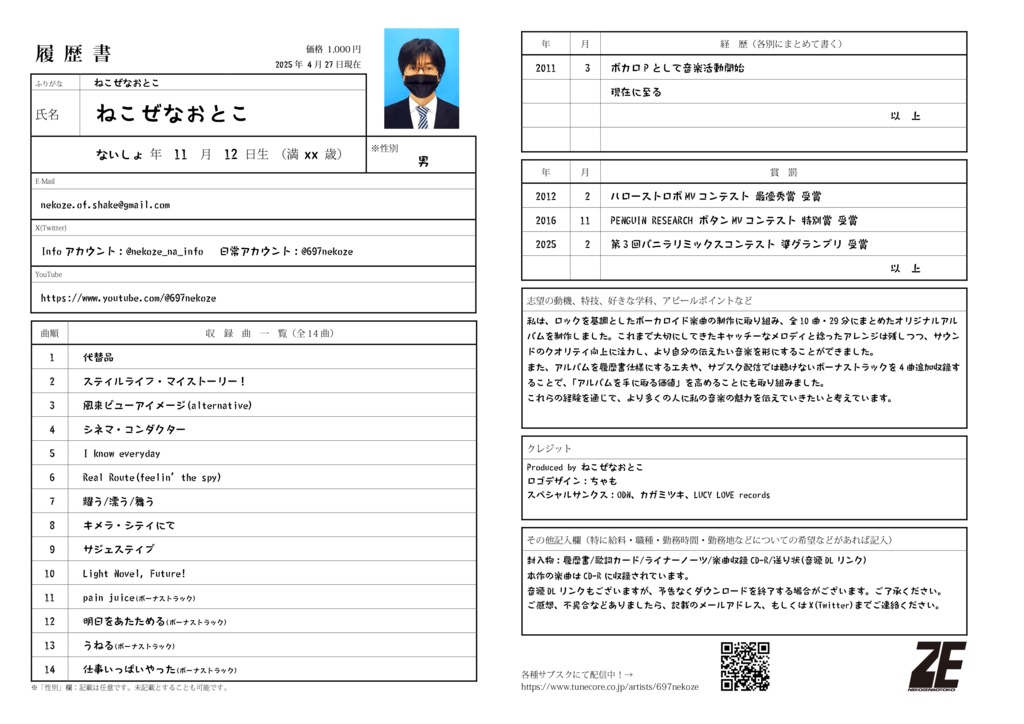 履 歴 書
価格 1,000円
2025年 4月27日現在
ふりがな ねこぜなおとこ
氏名 ねこぜなおとこ
ないしょ 年 11 月 12 日生 (満 xx 歳)
※性別
男
E-Mail
nekoze.of.shake@gmail.com
X(Twitter)
Infoアカウント:@nekoze_na_info 日常アカウント:@697nekoze
YouTube
https://www.youtube.com/@697nekoze
曲順 収 録 曲 一 覧(全14曲)
1 代替品
2 スティルライフ・マイストーリー!
3 風来ビューアイメージ(alternative)
4 シネマ・コンダクター
5 I know everyday
6 Real Route(feelin' the spy)
7 耀う/漂う/舞う
8 キメラ・シティにて
9 サジェステイブ
10 Light Novel, Future!
11 pain juice(ボーナストラック)
12 明日をあたためる(ボーナストラック)
13 うねる(ボーナストラック)
14 仕事いっぱいやった(ボーナストラック)
※「性別」欄:記載は任意です。未記載とすることも可能です。
年 月 経 歴(各別にまとめて書く)
2011 3 ボカロPとして音楽活動開始
現在に至る
以 上
年 月 賞 罰
2012 2 ハローストロボMVコンテスト 最優秀賞 受賞
2016 11 PENGUIN RESEARCH ボタンMVコンテスト 特別賞 受賞
2025 2 第3回バニラリミックスコンテスト 準グランプリ 受賞
以 上
志望の動機、特技、好きな学科、アピールポイントなど
私は、ロックを基調としたボーカロイド楽曲の制作に取り組み、全10曲・29分にまとめたオリジナルアル
バムを制作しました。これまで大切にしてきたキャッチーなメロディと捻ったアレンジは残しつつ、サウン
ドのクオリティ向上に注力し、より自分の伝えたい音楽を形にすることができました。
また、アルバムを履歴書仕様にする工夫や、サブスク配信では聴けないボーナストラックを4曲追加収録す
ることで、「アルバムを手に取る価値」を高めることにも取り組みました。
これらの経験を通じて、より多くの人に私の音楽の魅力を伝えていきたいと考えています。
クレジット
Produced by ねこぜなおとこ
ロゴデザイン:ちゃも
スペシャルサンクス:ODN、カガミツキ、LUCY LOVE records
その他記入欄(特に給料・職種・勤務時間・勤務地などについての希望などがあれば記入)
封入物:履歴書/歌詞カード/ライナーノーツ/楽曲収録CD-R/送り状(音源DLリンク)
本作の楽曲はCD-Rに収録されています。
音源DLリンクもございますが、予告なくダウンロードを終了する場合がございます。ご了承ください。
ご感想、不具合などありましたら、記載のメールアドレス、もしくはX(Twitter)までご連絡ください。
各種サブスクにて配信中!→
https://www.tunecore.co.jp/artists/697nekoze
ZE
NEKOZENAOTOKO